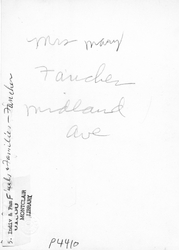 Mrs Mary
Fancher
midland
ave
Families - Fancher
MONTCLAIR
LIBRARY
P4410